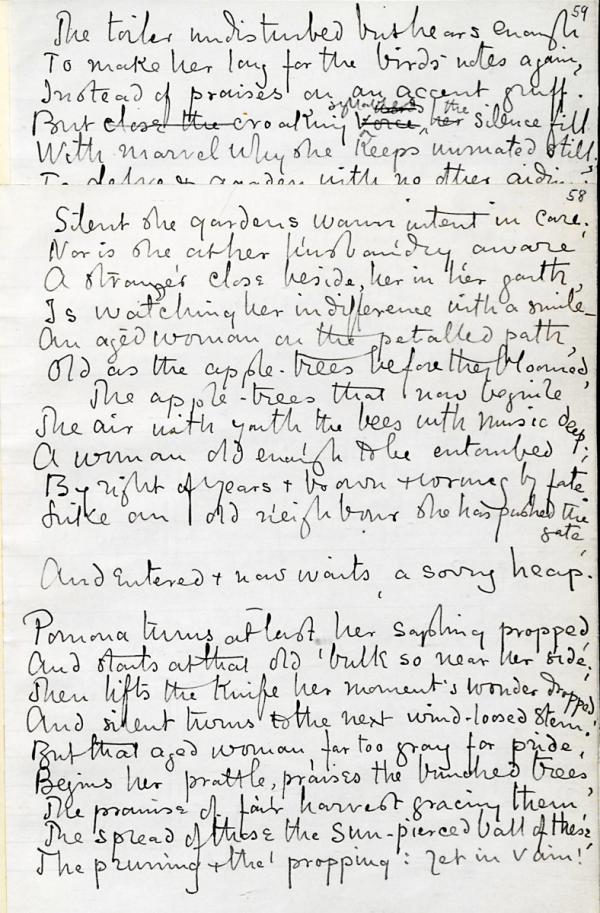 59
The toiler undisturbed but hears enough
To make her long for the birds' notes again,
Instead of praises on an accent gruff.
But close the croaking syllables the
Voice, her silence fill
With marvel why she keeps unmated still.
To delve a garden with no other aiding
58
Silent she gardens warm intent in care;
Nor is she at her husbandry aware
A stranger close beside, her in her garth,
Is watching her indifference with a smile—
An aged woman on the petalled path,
Old as the apple-trees before they bloomed,
The apple-trees that now beguile
The air with youth the bees with music deep;
A woman old enough to be entombed
By right of years & brown & worm by fate
Like an old neighbour she has pushed the
gate,
And entered & now waits, a sorry heap.
Pomona turns at last, her sapling propped,
And starts at that old bulk so near her side;
Then lifts the knife her moment's wonder dropped
And silent turns to the next wind-loosed stem.
But that aged woman far too gray for pride,
Begins her prattle, praises the bunched trees,
The promise of fair harvest gracing them,
The spread of these the sun-pierced ball of these,
The pruning & the propping: yet in vain!